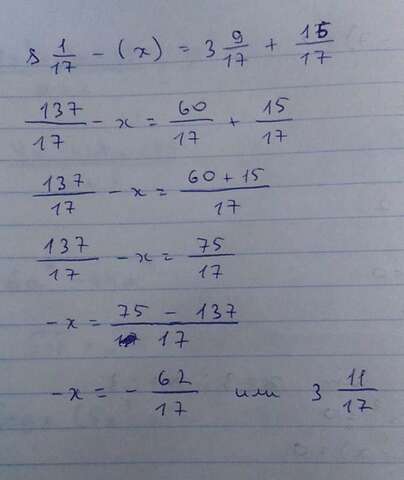 8 1/17 - (x) = 3 9/17 + 15/17
137/17 - x = 60/17 + 15/17
137/17 - x = 60 + 15/17
137/17 - x = 75/17
-x = 75 - 137/17
-x = - 62/17 или 3 11/17